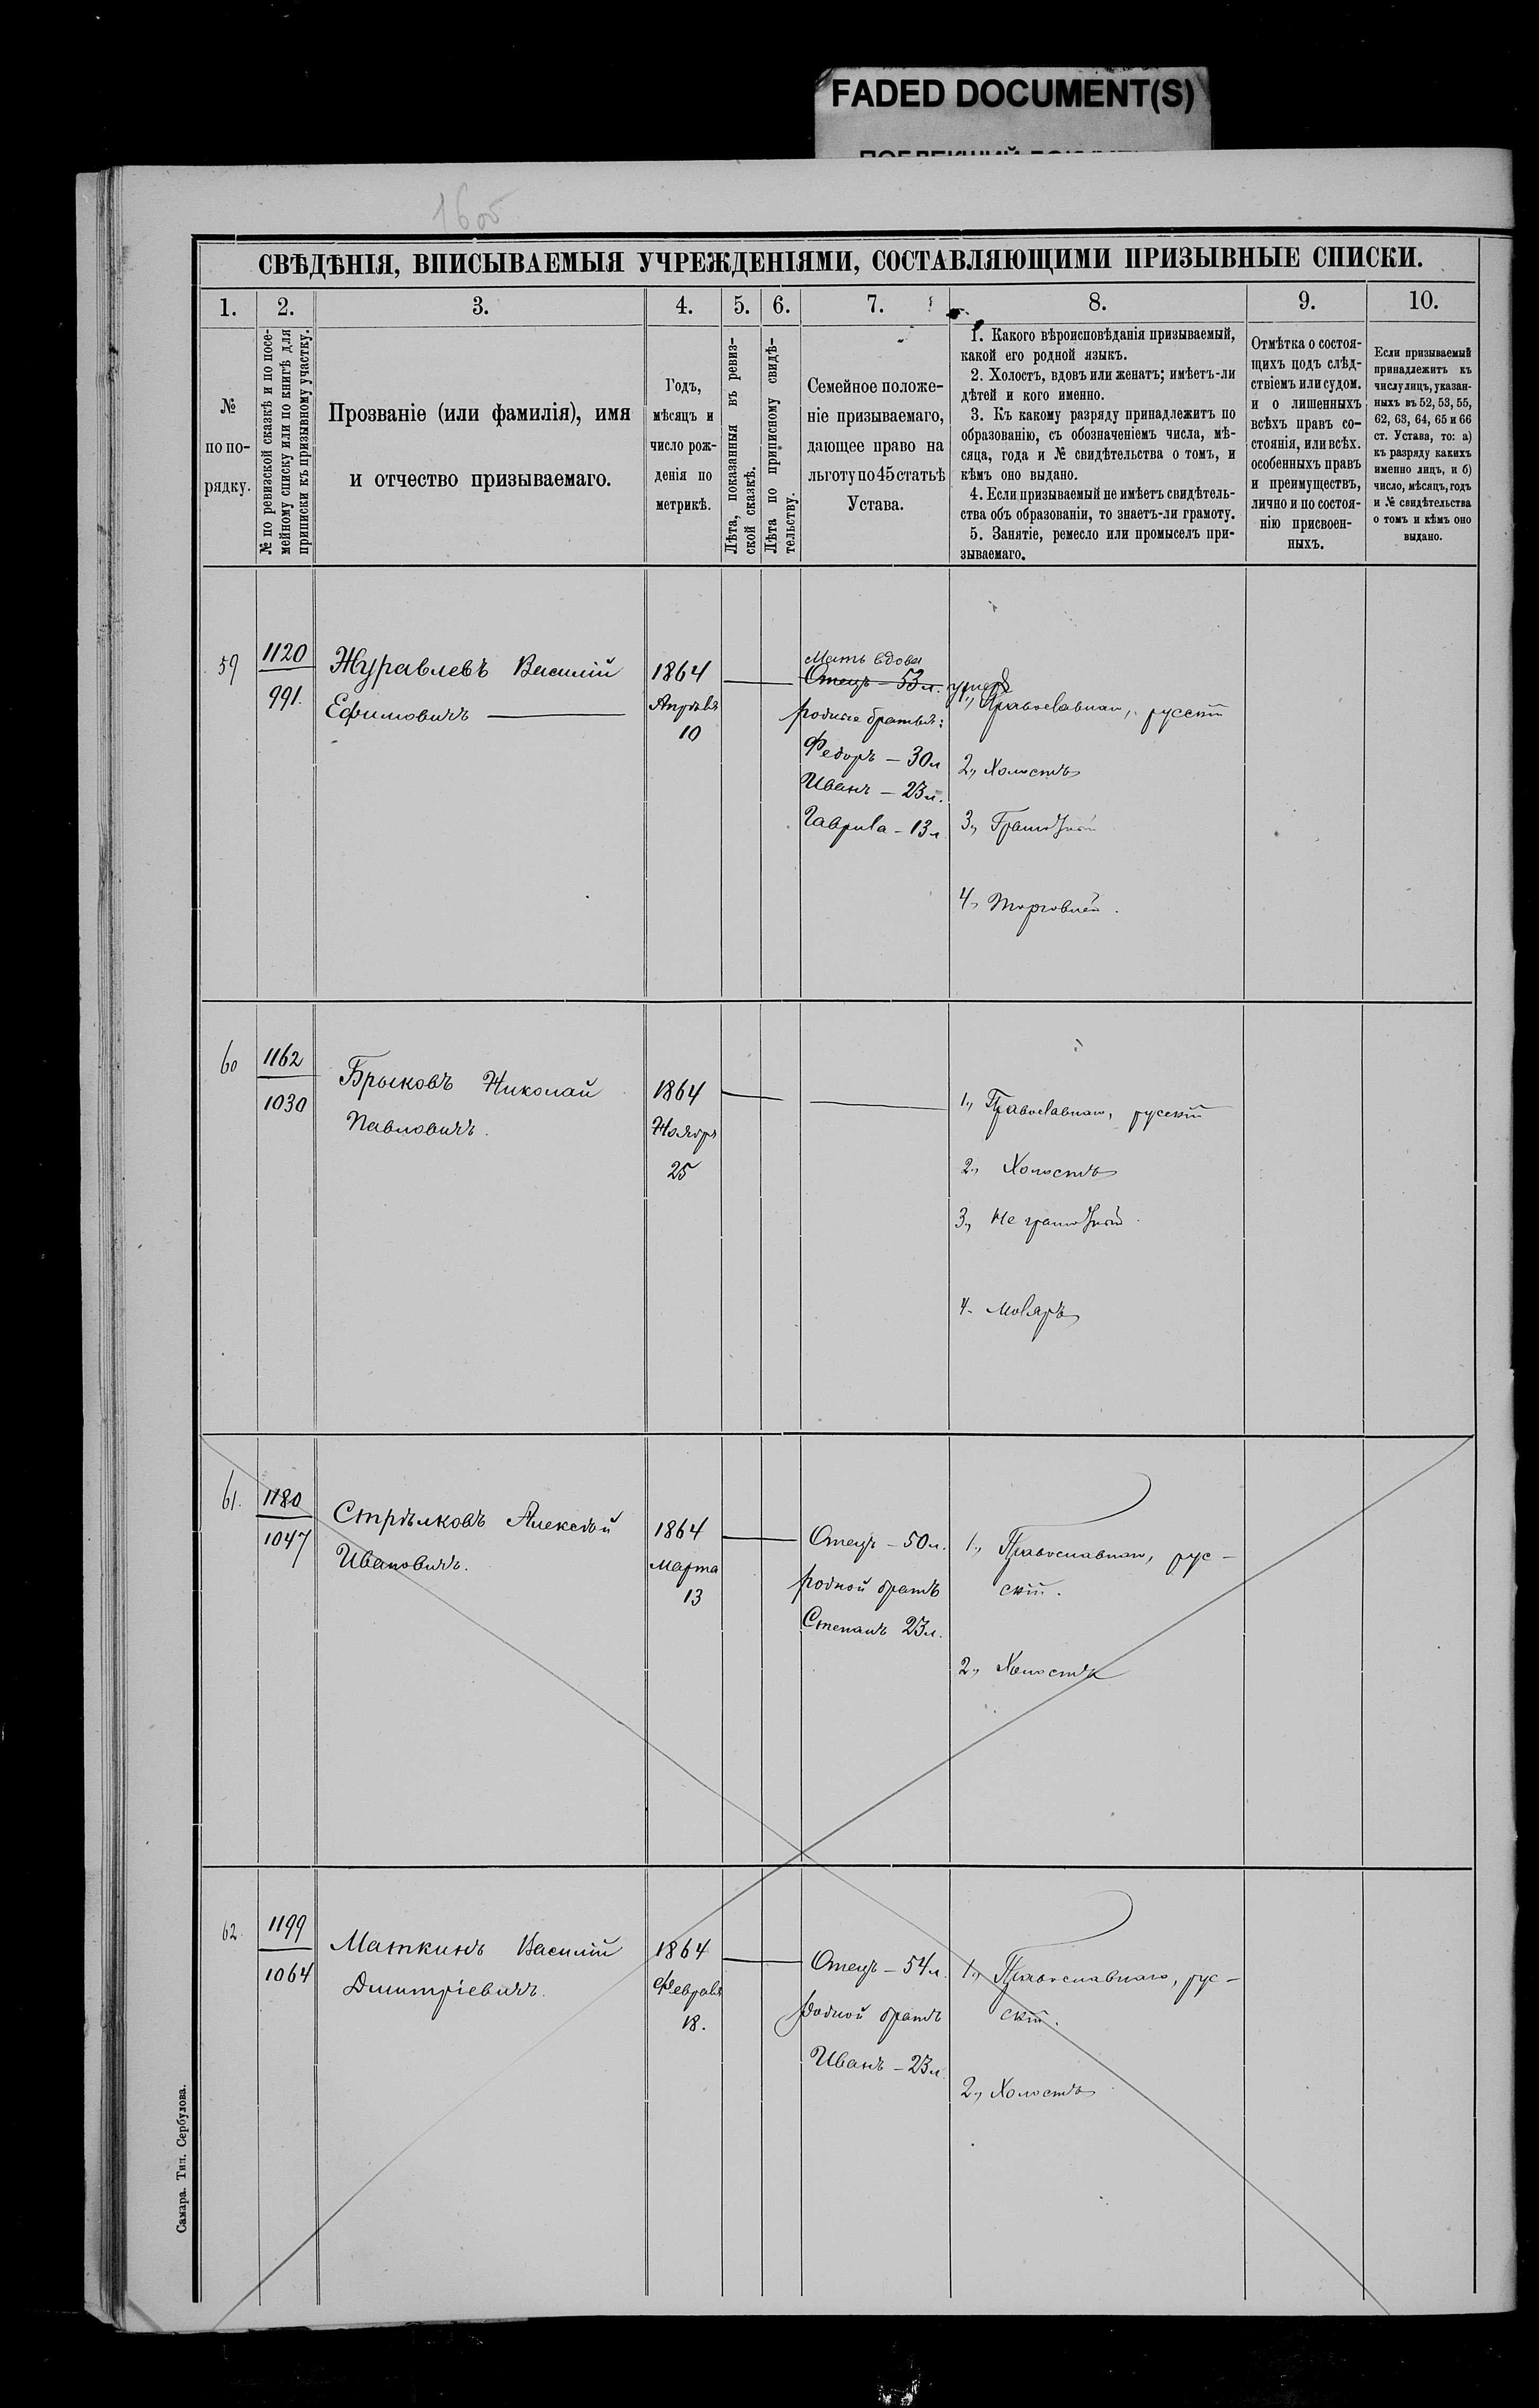 FADED DOCUMENT(S)
160б
СВѢДѢНІЯ, ВПИСЫВАЕМЫЯ УЧРЕЖДЕНІЯМИ, СОСТАВЛЯЮЩИМИ ПРИЗЫВНЫЕ СПИСКИ.
1.
2.
3.
4.
5.
6.
7.
8.
9.
10.
№
по по-
рядку.
№ по ревизской сказкѣ и по посе-
мейному списку или по книгѣ для
приписки къ призывному участку.
Прозваніе (или фамилія), имя
и отчество призываемаго.
Годъ,
мѣсяцъ и
число рож-
денія по
метрикѣ.
Лѣта, показанныя въ ревиз-
ской сказкѣ.
Лѣта по приписному свидѣ-
тельству.
Семейное положе-
ніе призываемаго,
дающее право на
льготу по 45 статьѣ
Устава.
1. Какого вѣроисповѣданія призываемый,
какой его родной языкъ.
2. Холостъ, вдовъ или женатъ; имѣетъ-ли
дѣтей и кого именно.
3. Къ какому разряду принадлежитъ по
образованію, съ обозначеніемъ числа, мѣ-
сяца, года и № свидѣтельства о томъ, и
кѣмъ оно выдано.
4. Если призываемый не имѣетъ свидѣтель-
ства объ образованіи, то знаетъ-ли грамоту.
5. Занятіе, ремесло или промыселъ при-
зываемаго.
Отмѣтка о состоя-
щихъ подъ слѣд-
ствіемъ или судом.
и о лишенныхъ
всѣхъ правъ со-
стоянія, или всѣх.
особенныхъ правъ
и преимуществъ,
лично и по состоя-
нію присвоен-
ныхъ.
Если призываемый
принадлежитъ къ
числу лицъ, указан-
ныхъ въ 52, 53, 55,
62, 63, 64, 65 и 66
ст. Устава, то: а)
къ разряду какихъ
именно лицъ, и б)
число, мѣсяцъ, годъ
и № свидѣтельства
о томъ и кѣмъ оно
выдано.
59
1120
991.
Журавлевъ Василій
Ефимовичъ
1864
Апрѣля
10
Мать вдова
Отецъ – 53 л. умеръ
родные братья:
Федоръ – 30 л
Иванъ – 23 л.
Гаврила – 13 л
1, Православнаго, русскій
2, Холостъ
3, Грамотный
4, Торговлей.
60
1162
1030
Брыковъ Николай
Павловичъ.
1864
Ноября
25
1, Православнаго, русскій
2, Холостъ
3, Не грамотный.
4. Моляръ
61.
1180
1047
Стрѣлковъ Алексѣй
Ивановичъ.
1864
Марта
13
Отецъ – 50 л.
родной братъ
Степанъ 23 л.
1, Православнаго, рус-
скій.
2, Холостъ
62.
1199
1064
Маткинъ Василій
Дмитріевичъ.
1864
Февраля
18.
Отецъ – 54 л.
родной братъ
Иванъ – 23 л.
1, Православнаго, рус-
скій.
2, Холостъ
Самара. Тип. Сербузова.